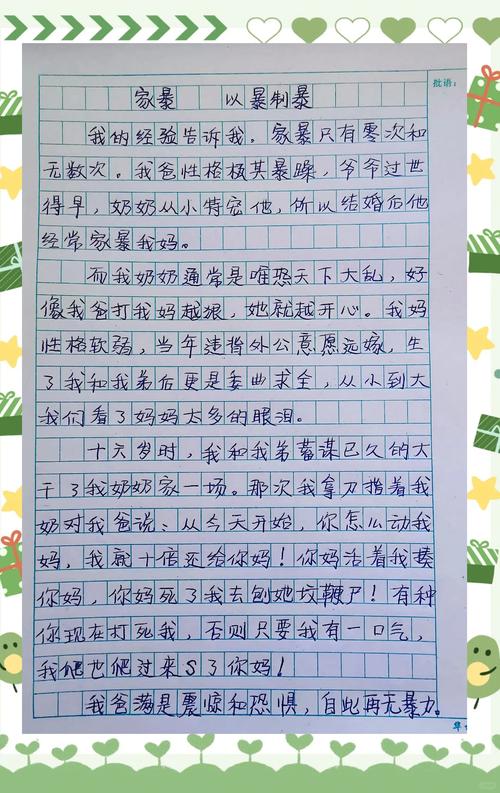 批语:
家暴 以暴制暴
我的经验告诉我。家暴只有零次和
无数次。我爸性格极其暴躁,爷爷过世
得早,奶奶从小特宠他,所以结婚后他
经常家暴我妈。
而我奶奶通常是唯恐天下大乱,好
像我爸打我妈越狠,她就越开心。我妈
性格软弱,当年违背外公意愿远嫁,生
了我和我弟后更是委曲求全,从小到大
我们看了妈妈太多的眼泪。
十六岁时,我和我弟蓄谋已久的大
干了我奶奶家一场。那次我拿刀指着我
奶对我爸说:从今天开始,你怎么动我
妈,我就十倍还给你妈!你妈活着我揍
你妈,你妈死了我去刨她坟鞭尸!有种
你现在打死我,否则只要我有一口气,
我爬也爬过来S了你妈!
我爸满是震惊和恐惧,自此再无暴力。